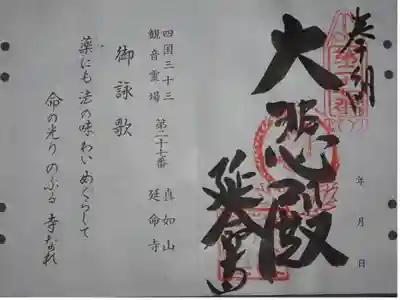 奉納
大悲殿
延命寺
年 月 日
四国三十三
観音霊場 第二十七番 真如山 延命寺
御詠歌
薬にも法の味わいめぐらして
命の光りのぶる寺なれ